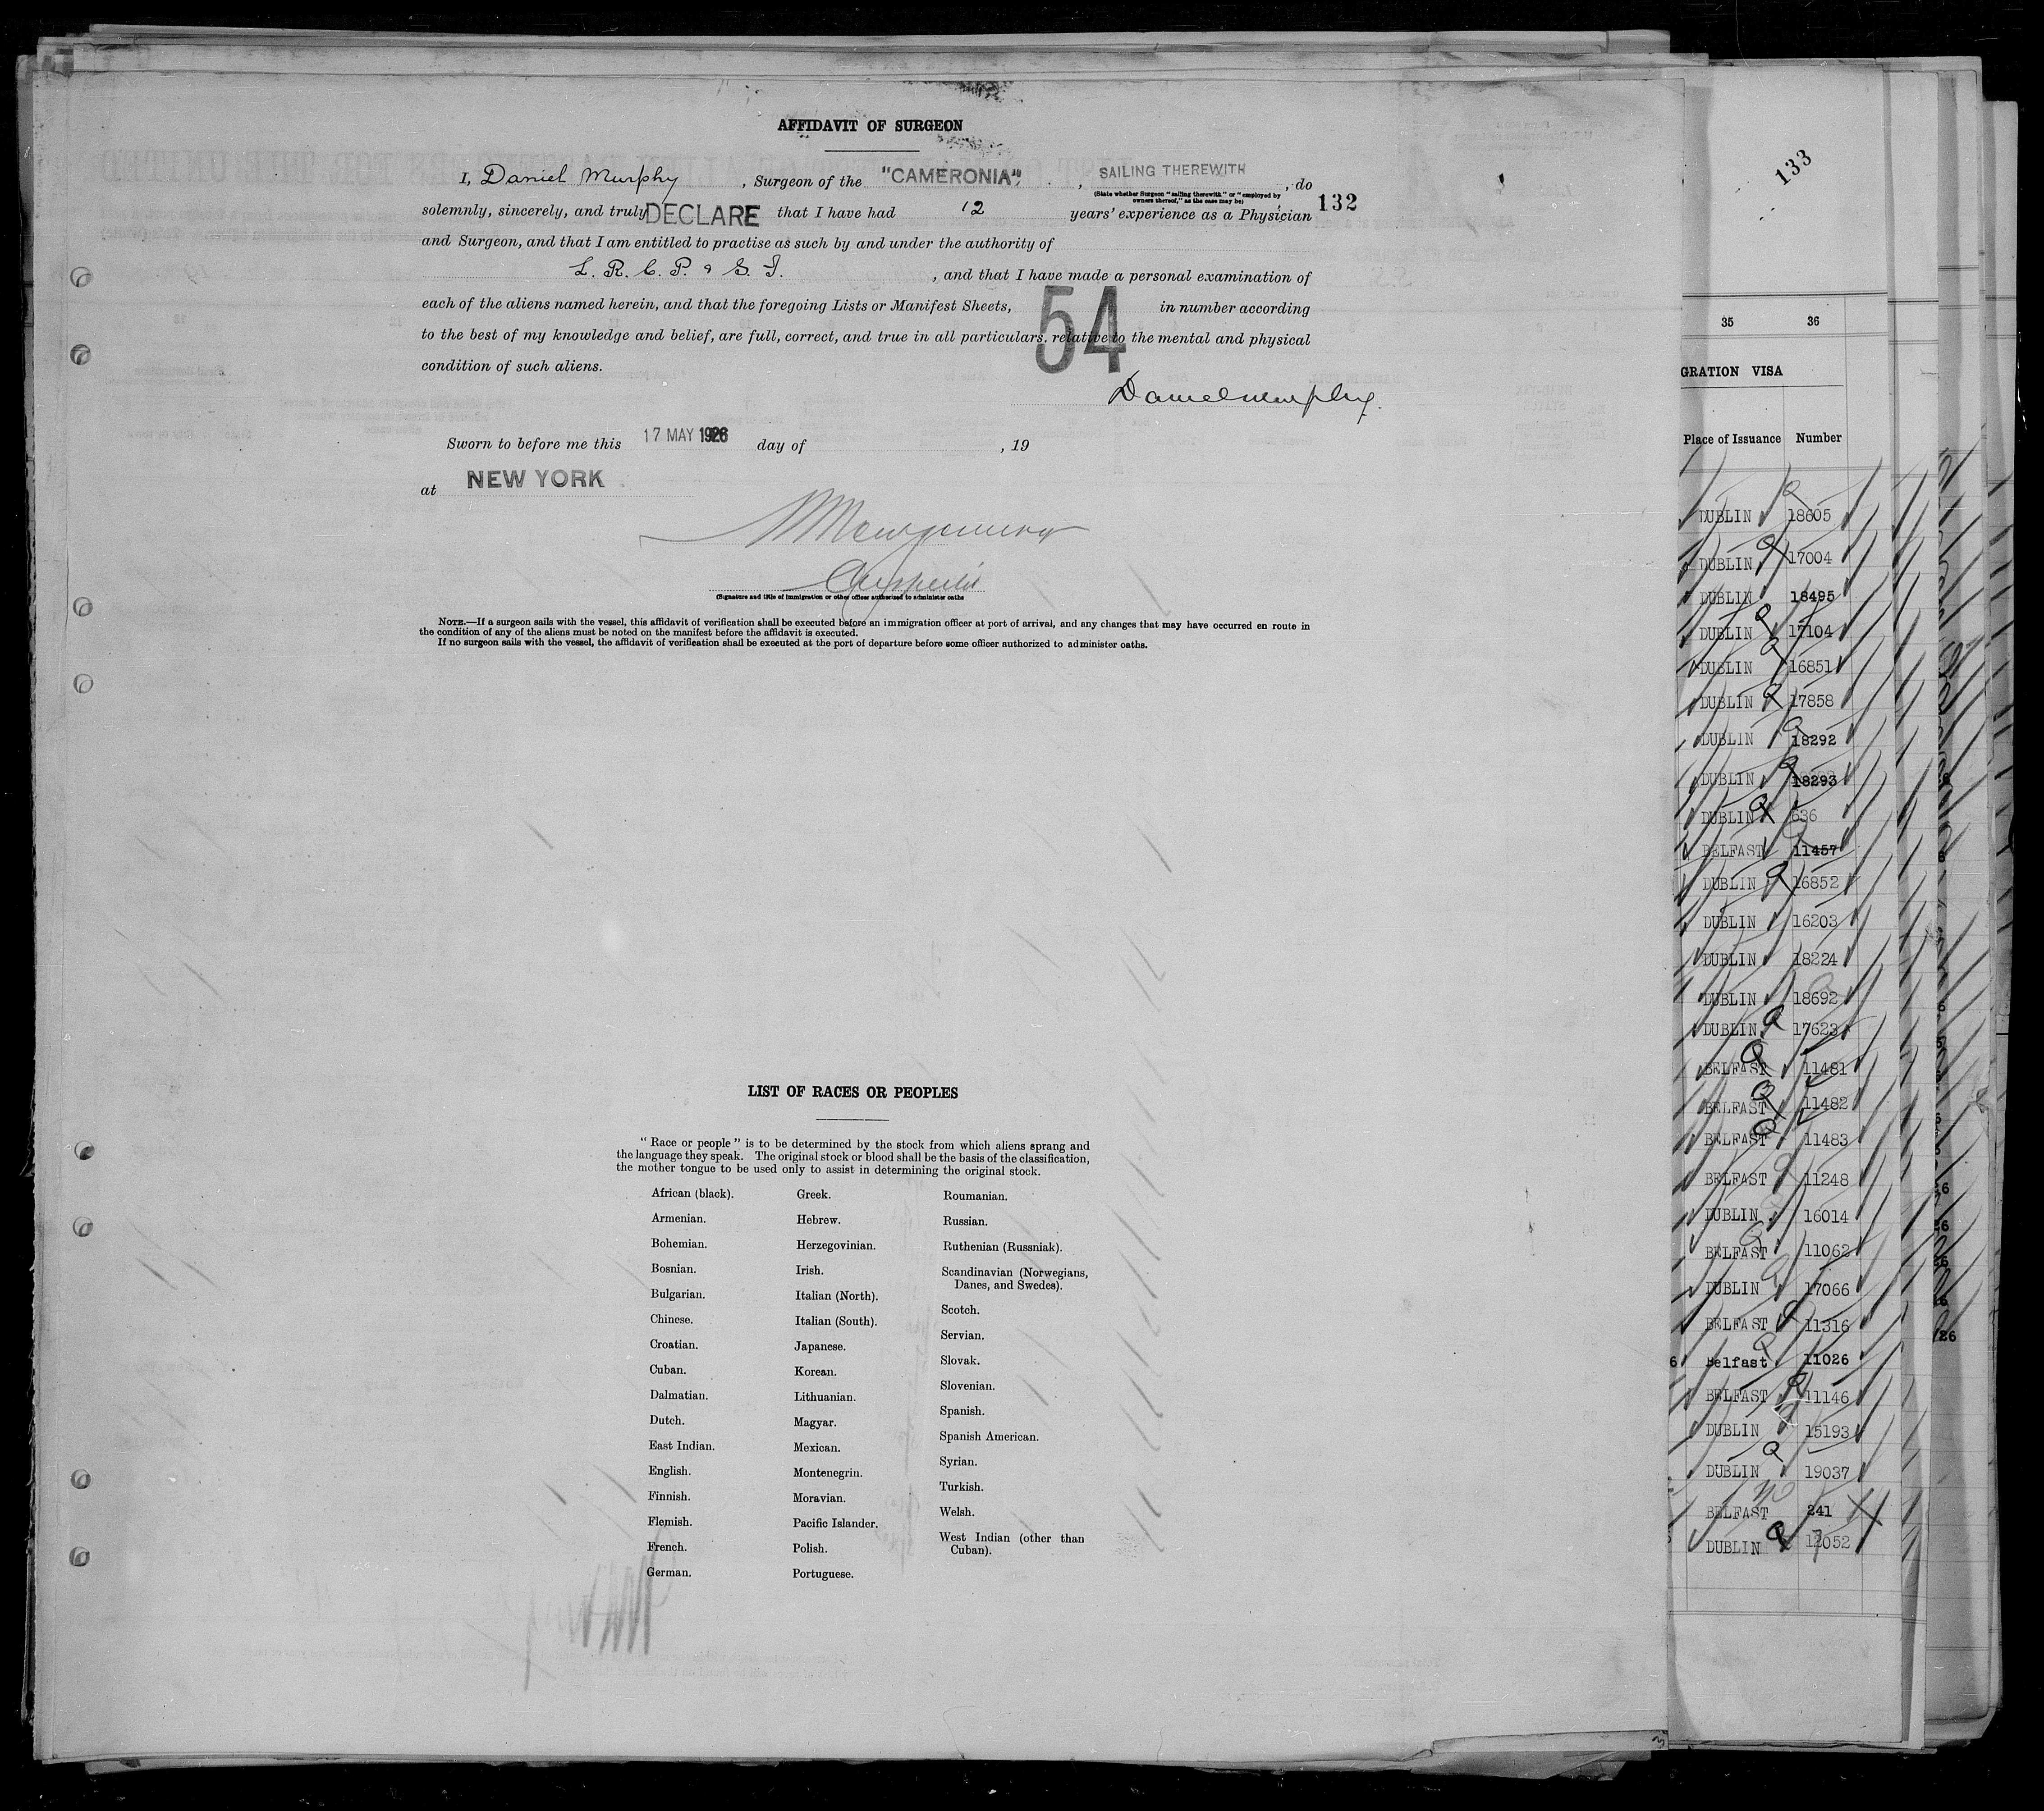 AFFIDAVIT OF SURGEON
I, Daniel Murphy, Surgeon of the "CAMERONIA", SAILING THEREWITH, do
(State whether Surgeon "sailing therewith" or "employed by
owners thereof," as the case may be)
132
solemnly, sincerely, and truly DECLARE that I have had 12 years' experience as a Physician
and Surgeon, and that I am entitled to practise as such by and under the authority of
L. R. C. P. & S. I., and that I have made a personal examination of
each of the aliens named herein, and that the foregoing Lists or Manifest Sheets, 54 in number according
to the best of my knowledge and belief, are full, correct, and true in all particulars, relative to the mental and physical
condition of such aliens.
Daniel Murphy.
Sworn to before me this 17 MAY 1926 day of , 19
at NEW YORK
(Signature and title of immigration or other officer authorized to administer oaths
NOTE.—If a surgeon sails with the vessel, this affidavit of verification shall be executed before an immigration officer at port of arrival, and any changes that may have occurred en route in
the condition of any of the aliens must be noted on the manifest before the affidavit is executed.
If no surgeon sails with the vessel, the affidavit of verification shall be executed at the port of departure before some officer authorized to administer oaths.
LIST OF RACES OR PEOPLES
"Race or people" is to be determined by the stock from which aliens sprang and
the language they speak. The original stock or blood shall be the basis of the classification,
the mother tongue to be used only to assist in determining the original stock.
African (black).
Armenian.
Bohemian.
Bosnian.
Bulgarian.
Chinese.
Croatian.
Cuban.
Dalmatian.
Dutch.
East Indian.
English.
Finnish.
Flemish.
French.
German.
Greek.
Hebrew.
Herzegovinian.
Irish.
Italian (North).
Italian (South).
Japanese.
Korean.
Lithuanian.
Magyar.
Mexican.
Montenegrin.
Moravian.
Pacific Islander.
Polish.
Portuguese.
Roumanian.
Russian.
Ruthenian (Russniak).
Scandinavian (Norwegians,
Danes, and Swedes).
Scotch.
Servian.
Slovak.
Slovenian.
Spanish.
Spanish American.
Syrian.
Turkish.
Welsh.
West Indian (other than
Cuban).
133
35 36
GRATION VISA
Place of Issuance Number
DUBLIN 18605
DUBLIN 17004
DUBLIN 18495
DUBLIN 17104
DUBLIN 16851
DUBLIN 17858
DUBLIN 18292
DUBLIN 18293
DUBLIN 636
BELFAST 11457
DUBLIN 16852
DUBLIN 16203
DUBLIN 18224
DUBLIN 18692
DUBLIN 17623
BELFAST 11481
BELFAST 11482
BELFAST 11483
BELFAST 11248
DUBLIN 16014
BELFAST 11062
DUBLIN 17066
BELFAST 11316
Belfast 11026
BELFAST 11146
DUBLIN 15193
DUBLIN 19037
BELFAST 241
DUBLIN 12052